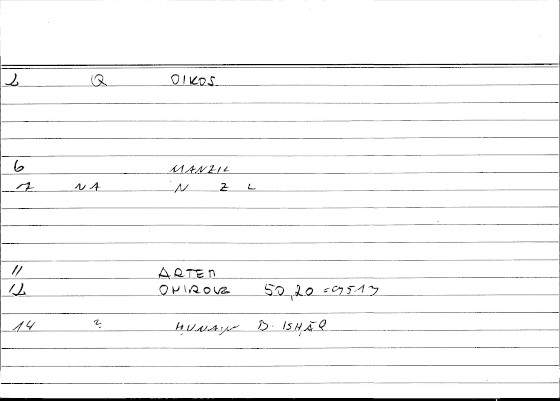 2 Q OIKOS
6 MANZIL
7 NA N Z L
11 ARTEM
12 ONIROUE 50,20 =9513
14 ? ḤUNAIN B. ISḤĀQ